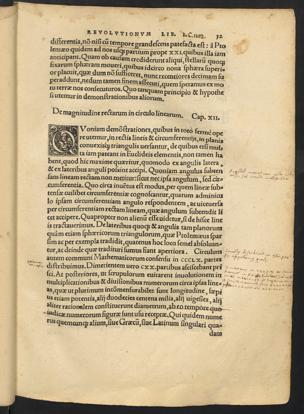 REVOLVTIONVM LIB. I.
differentia, nõ nisi cũ tempore grandescens patefacta est: à Pto
lemæo quidem ad nos usque partium prope XXI, quibus illa iam
anticipant. Quam ob causam crediderunt aliqui, stellarũ quoque
fixarum sphæram moueri, quibus idcirco nona sphæra superi
or placuit, quæ dum nõ sufficeret, nunc recentiores decimam su
peraddunt, nedum tamen finem assecuti, quem speramus ex mo
tu terræ nos consecuturos. Quo tanquam principio & hypothe
si utemur in demonstrationibus aliorum.
De magnitudine rectarum in circulo linearum. Cap. XII.
QVoniam demõstrationes, quibus in toto ferme ope
re utemur, in rectis lineis & circumferentijs, in planis
conuexisque triangulis uersantur, de quibus etsi mul
ta iam pateant in Euclideis elementis, non tamen ha
bent, quod hic maxime quæritur, quomodo ex angulis latera,
& ex lateribus anguli possint accipi. Quoniam angulus subten
sam lineam rectam non metitur: sicut nec ipsa angulum, sed cir
cumferentia. Quo circa inuentus est modus, per quem lineæ sub
tensæ cuilibet circumferentiæ cognoscantur, quarum adminicu
lo ipsam circumferentiam angulo respondentem, ac uiceuersa
per circumferentiam rectam lineam, quæ angulum subtendit li
cet accipere. Quapropter non alienũ esse uidetur, si de hisce line
is tractauerimus. De lateribus quoque & angulis tam planorum
quàm etiam sphæricorum triangulorum, quæ Ptolemæus spar
sim ac per exempla tradidit, quatenus hoc loco semel absoluan
tur, ac deinde quæ tradituri sumus fiant apertiora. Circulum
autem communi Mathematicorum consensu in CCCLX. partes
distribuimus. Dimetientem uero CXX. partibus asciscebant pri
sci. At posteriores, ut scrupulorum euitarent inuolutionem in
multiplicationibus & diuisionibus numerorum circa ipsas line-
as, quæ ut plurimum incõmensurabiles sunt longitudine, sæpi
us etiam potentia, alij duodecies centena milia, alij uigesies, alij
aliter rationalem constituerunt diametrum, ab eo tempore quo
indicæ numerorum figuræ sunt usu receptæ. Qui quidem nume
rus quemcunque alium, siue Græcũ, siue Latinum singulari qua-
dam